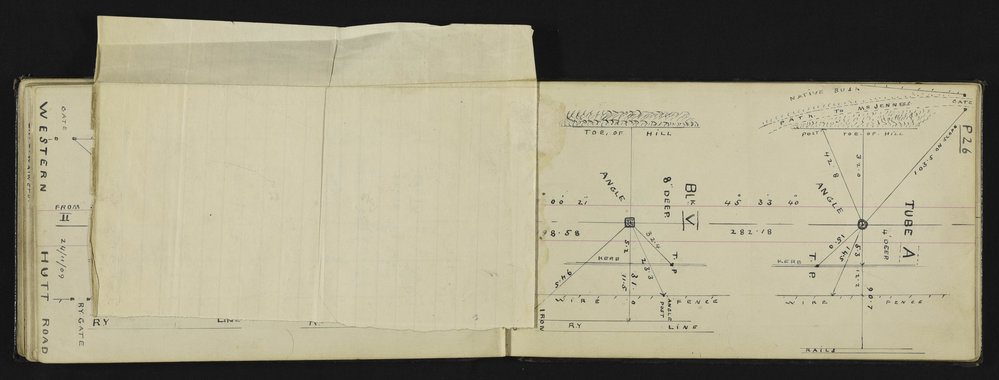 WESTERN HUTT ROAD
GATE
FROM
II
24/11/09
RY. GATE
RY
LINE
TOE. OF HILL
ANGLE
8' DEEP.
BLK V
00 21
45 33 40
8.58
282.18
32.4
5.2
23.3
T.P
KERB
54.6
11.5
31.0
WIRE FENCE
ANGLE POST
IRON
RY LINE
NATIVE BUSH
GATE
PATH TO MR JENNESS
POST
TOE. OF HILL
P26
42.8
32.0
103.5 ON SLOPE
ANGLE
TUBE A
4' DEEP
15.0
14.5
5.3
KERB
T.P.
12.2
90.7
WIRE FENCE
RAILS